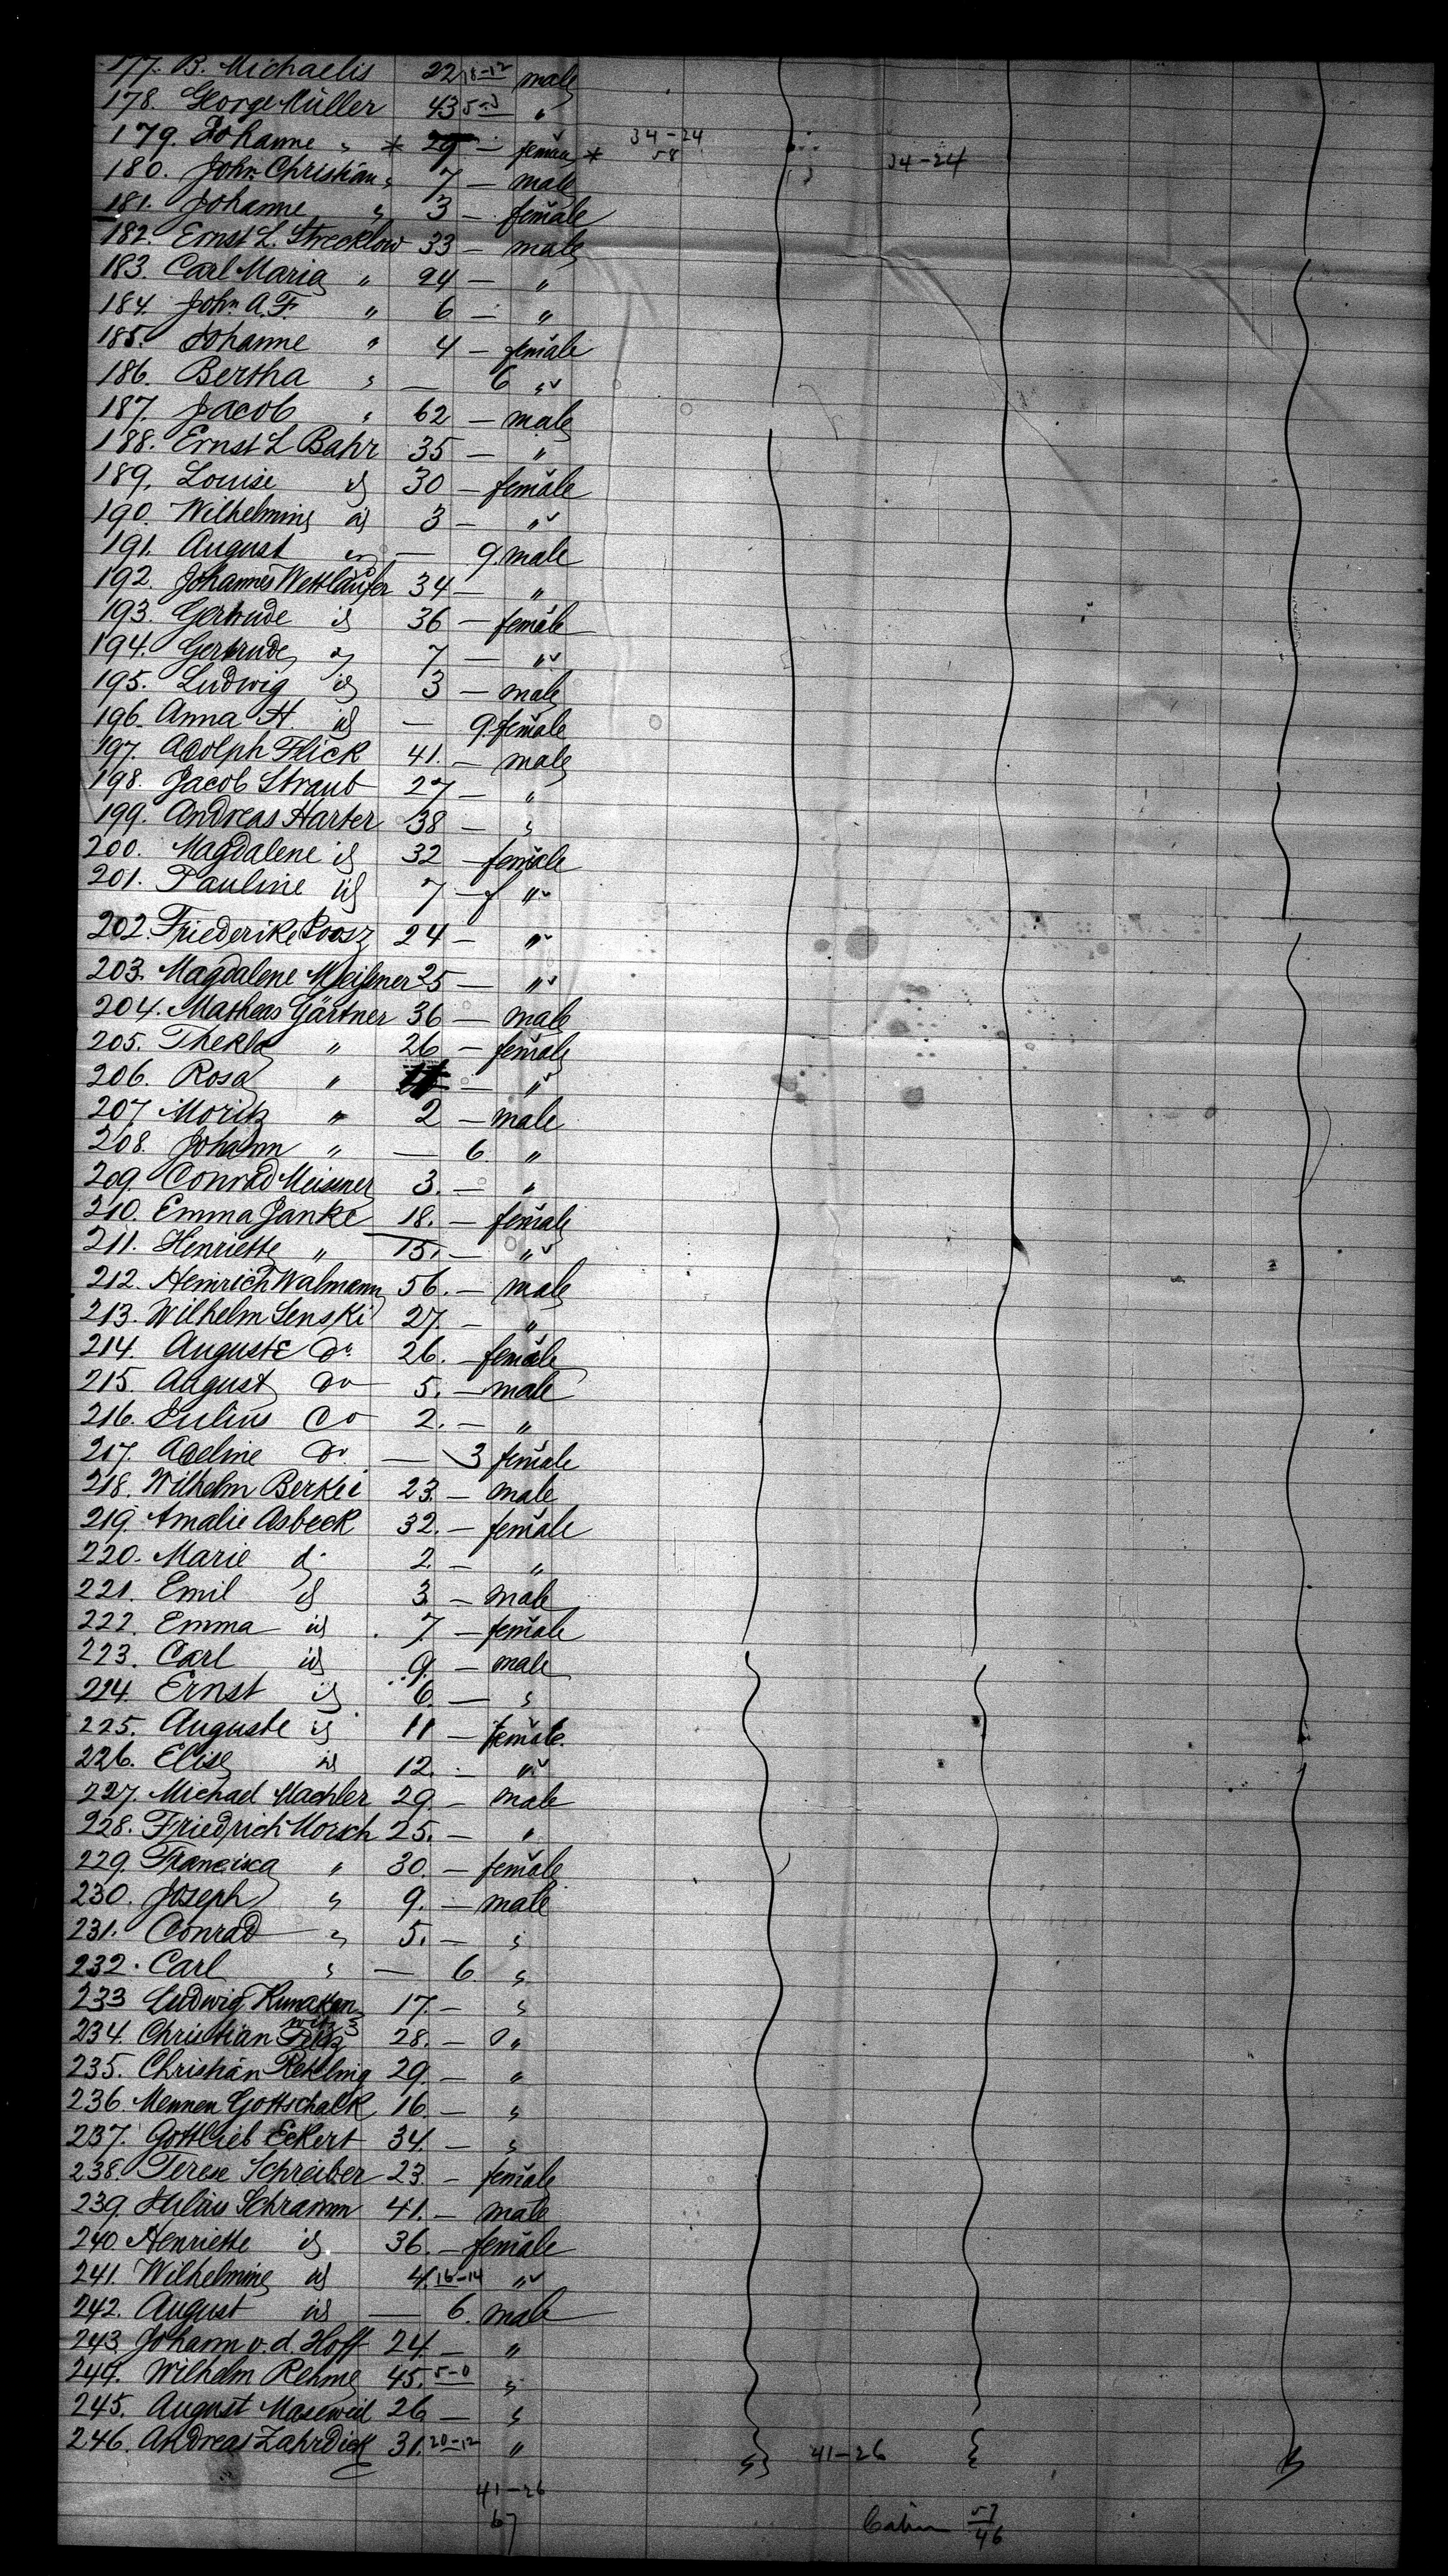 177. B. Michaelis 22 18-12 male
178. George Müller 43 5-3 "
179. Johanne " * 29 — female * 34-24
58 34-24
180. John Christian " 7 — male
181. Johanne " 3 — female
182. Ernst L. Strecklow 33 — male
183. Carl Maria " 24 — "
184. John A. F. " 6 — "
185. Johanne " 4 — female
186. Bertha " — 6 "
187. Jacob " 62 — male
188. Ernst L Bahr 35 — "
189. Louise id 30 — female
190. Wilhelmine id 3 — "
191. August id — 9. male
192. Johannes Wettlaufer 34 — "
193. Gertrude id 36 — female
194. Gertrude id 7 — "
195. Ludwig id 3 — male
196. Anna H id — 9. female
197. Adolph Flick 41. — male
198. Jacob Straub 27 — "
199. Andreas Harter 38 — "
200. Magdalene id 32 — female
201. Pauline id 7 — f "
202. Friederike Poosz 24 — "
203. Magdalene Meißner 25 — "
204. Matheas Gärtner 36 — male
205. Thekla " 26 — female
206. Rosa " — "
207. Moritz " 2 — male
208. Johann " — 6. "
209. Conrad Meissner 3. — "
210. Emma Janke 18. — female
211. Henriette " 15. — "
212. Heinrich Walmann 56. — male
213. Wilhelm Senski 27. — "
214. Auguste do 26. — female
215. August do 5. — male
216. Julius do 2. — "
217. Adeline do — 3 female
218. Wilhelm Berkei 23. — male
219. Amalie Asbeck 32. — female
220. Marie id 2. — "
221. Emil id 3 — male
222. Emma id 7. — female
223. Carl id 9. — male
224. Ernst id 6. — "
225. Auguste id 11 — female.
226. Elise id 12. — "
227. Michael Machler 29. — male
228. Friedrich Morsch 25. — "
229. Francisca " 30. — female
230. Joseph " 9. — male
231. Conrad " 5. — "
232. Carl " — 6. "
233 Ludwig 17. — "
234. Christian 28. — "
235. Christian Rehling 29. — "
236. Mennen Gottschalk 16. — "
237. Gottlieb Eckert 34. — "
238. Terese Schreiber 23. — female
239. Julius Schramm 41. — male
240. Henriette id 36. — female
241. Wilhelmine id 4. 16-14 "
242. August id — 6. male
243. Johann v. d. Hoff 24. — "
244. Wilhelm Rehme 45. 5-0 "
245. August Maseweil 26 — "
246. Andreas Zahrdick 31. 20-12 " 41-26
41-26
67 Cabin 57
46